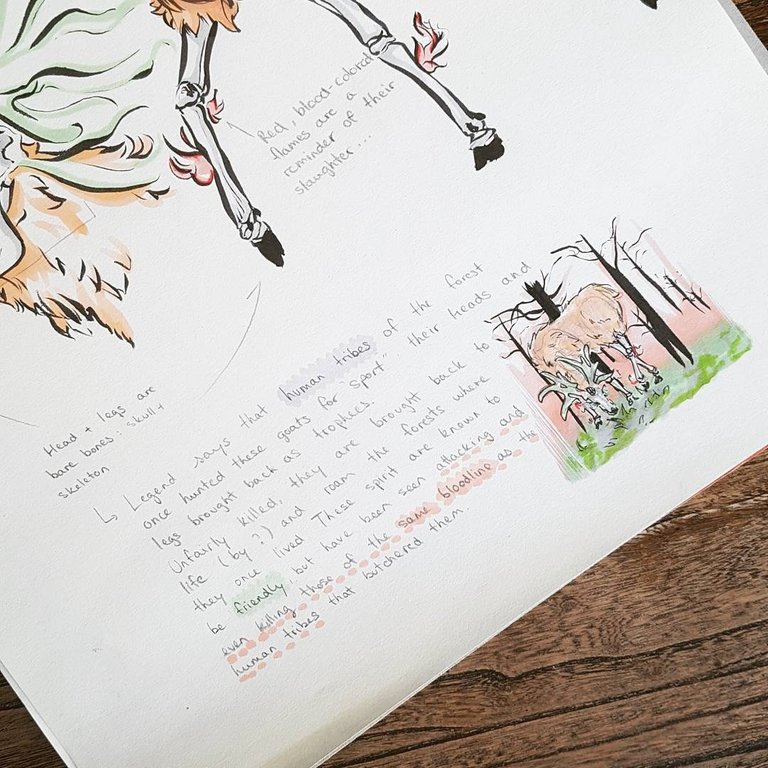 Red, blood-colored
flames are a
reminder of their
slaughter...
Head + legs are
bare bones: skull +
skeleton
↳ Legend says that human tribes of the forest
once hunted these goats for "sport", their heads and
legs brought back as trophees.
Unfairly killed, they are brought back to
life (by ?) and roam the forests where
they once lived These spirit are known to
be friendly, but have been seen attacking and
even killing those of the same bloodline as the
human tribes that butchered them.